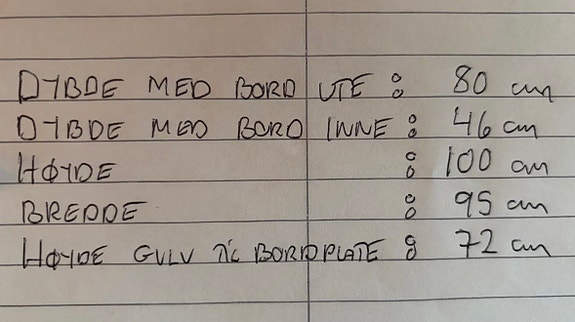 DYBDE MED BORD UTE : 80 cm
DYBDE MED BORD INNE : 46 cm
HØYDE : 100 cm
BREDDE : 95 cm
HØYDE GULV TIL BORDPLATE : 72 cm